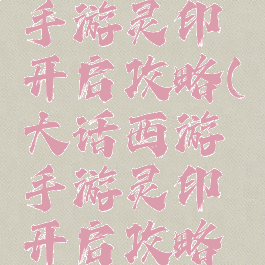 手游灵印
开启攻略(
大话西游
手游灵印
开启攻略